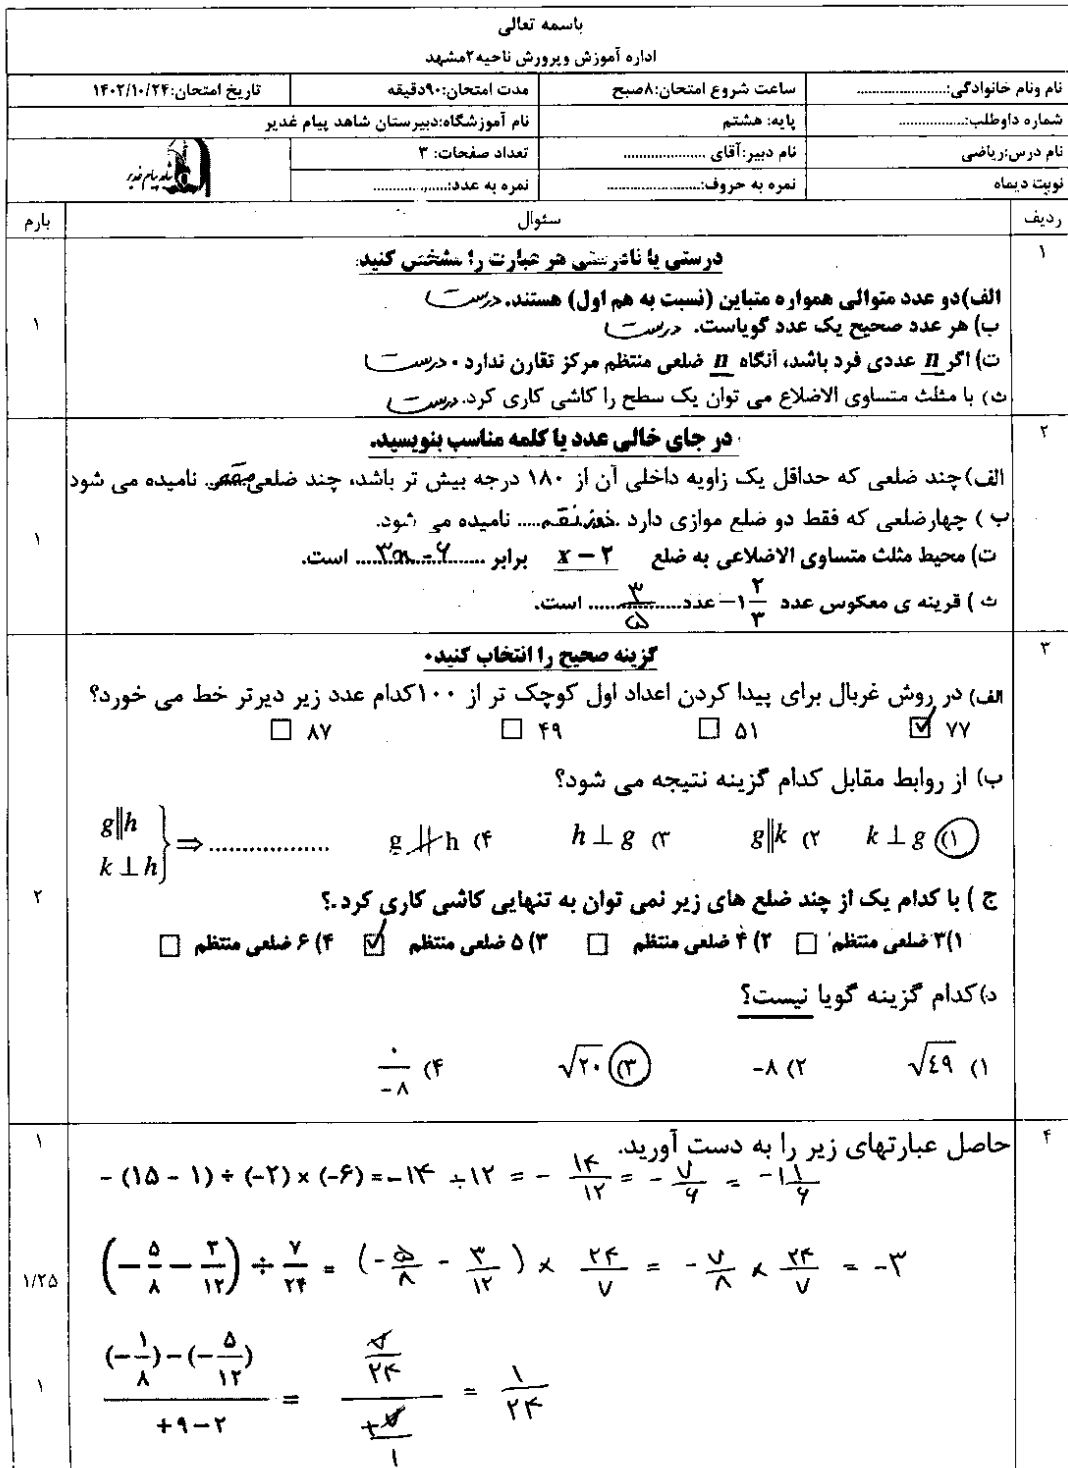 باسمه تعالی
اداره آموزش وپرورش ناحیه۲مشهد
نام ونام خانوادگی:...................... ساعت شروع امتحان:۸صبح مدت امتحان:۹۰دقیقه تاریخ امتحان:۱۴۰۲/۱۰/۲۴
شماره داوطلب:................ پایه: هشتم نام آموزشگاه:دبیرستان شاهد پیام غدیر
نام درس:ریاضی نام دبیر:آقای .................... تعداد صفحات: ۳
نوبت دیماه نمره به حروف:....................... نمره به عدد:..................
ردیف سئوال بارم
۱ درستی یا نادرستی هر عبارت را مشخص کنید:
الف)دو عدد متوالی همواره متباین (نسبت به هم اول) هستند. درست
ب) هر عدد صحیح یک عدد گویاست. درست ۱
ت) اگر n عددی فرد باشد، آنگاه n ضلعی منتظم مرکز تقارن ندارد. درست
ث) با مثلث متساوی الاضلاع می توان یک سطح را کاشی کاری کرد. درست
۲ در جای خالی عدد یا کلمه مناسب بنویسید.
الف)چند ضلعی که حداقل یک زاویه داخلی آن از ۱۸۰ درجه بیش تر باشد، چند ضلعی مقعر نامیده می شود
ب) چهارضلعی که فقط دو ضلع موازی دارد ذوزنقه..... نامیده می شود. ۱
ت) محیط مثلث متساوی الاضلاعی به ضلع x − ۲ برابر ...۳x − ۶... است.
ث) قرینه ی معکوس عدد −۱ ۲/۳ عدد ...۳/۵... است.
۳ گزینه صحیح را انتخاب کنید.
الف) در روش غربال برای پیدا کردن اعداد اول کوچک تر از ۱۰۰کدام عدد زیر دیرتر خط می خورد؟
۷۷ ☑ ۵۱ □ ۴۹ □ ۸۷ □
ب) از روابط مقابل کدام گزینه نتیجه می شود؟
۱) k ⊥ g ۲) g∥k ۳) h ⊥ g ۴) g ∦ h g∥h k ⊥ h} ⇒ .................
ج) با کدام یک از چند ضلع های زیر نمی توان به تنهایی کاشی کاری کرد.؟ ۲
۱)۳ ضلعی منتظم □ ۲) ۴ ضلعی منتظم □ ۳) ۵ ضلعی منتظم ☑ ۴) ۶ ضلعی منتظم □
د)کدام گزینه گویا نیست؟
۱) √۴۹ ۲) −۸ ۳) √۲۰ ۴) ۰/−۸
۴ حاصل عبارتهای زیر را به دست آورید. ۱
− (۱۵ − ۱) ÷ (−۲) × (−۶) = −۱۴ ÷ ۱۲ = − ۱۴/۱۲ = − ۷/۶ = −۱ ۱/۶
(−۵/۸ − ۳/۱۲) ÷ ۷/۲۴ = (−۵/۸ − ۳/۱۲) × ۲۴/۷ = −۷/۸ × ۲۴/۷ = −۳ ۱/۲۵
((−۱/۸)−(−۵/۱۲))/(+۹−۲) = (۷/۲۴)/(+۷/۱) = ۱/۲۴ ۱